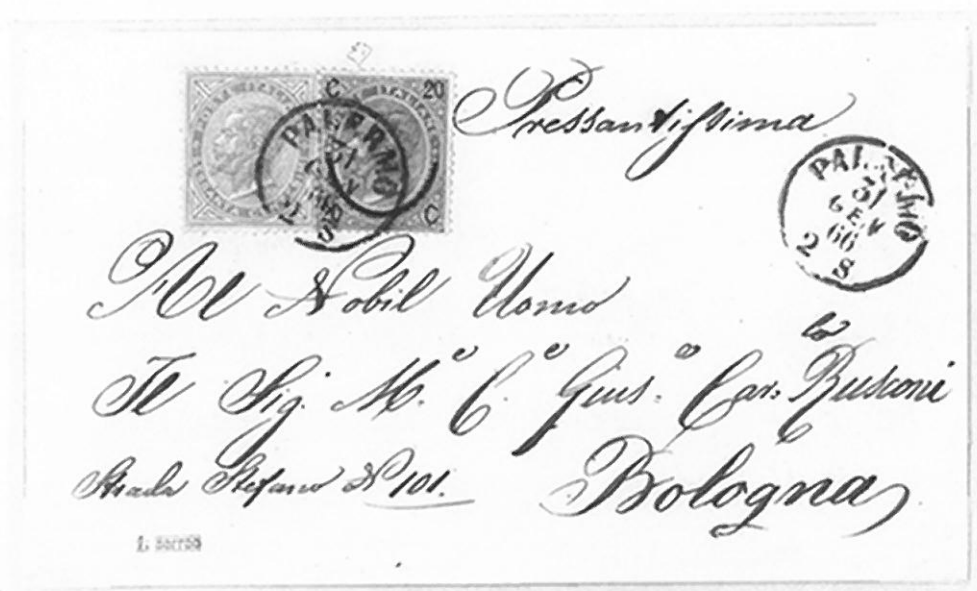 C 20
C
PALERMO
31
GEN
Pressantissima
PALERMO
31
GEN
66
2 S
Al Nobil Uomo
Il Sig. M.e C.e Gius.e Car.lo Rusconi
Strada Stefano N 101.
Bologna